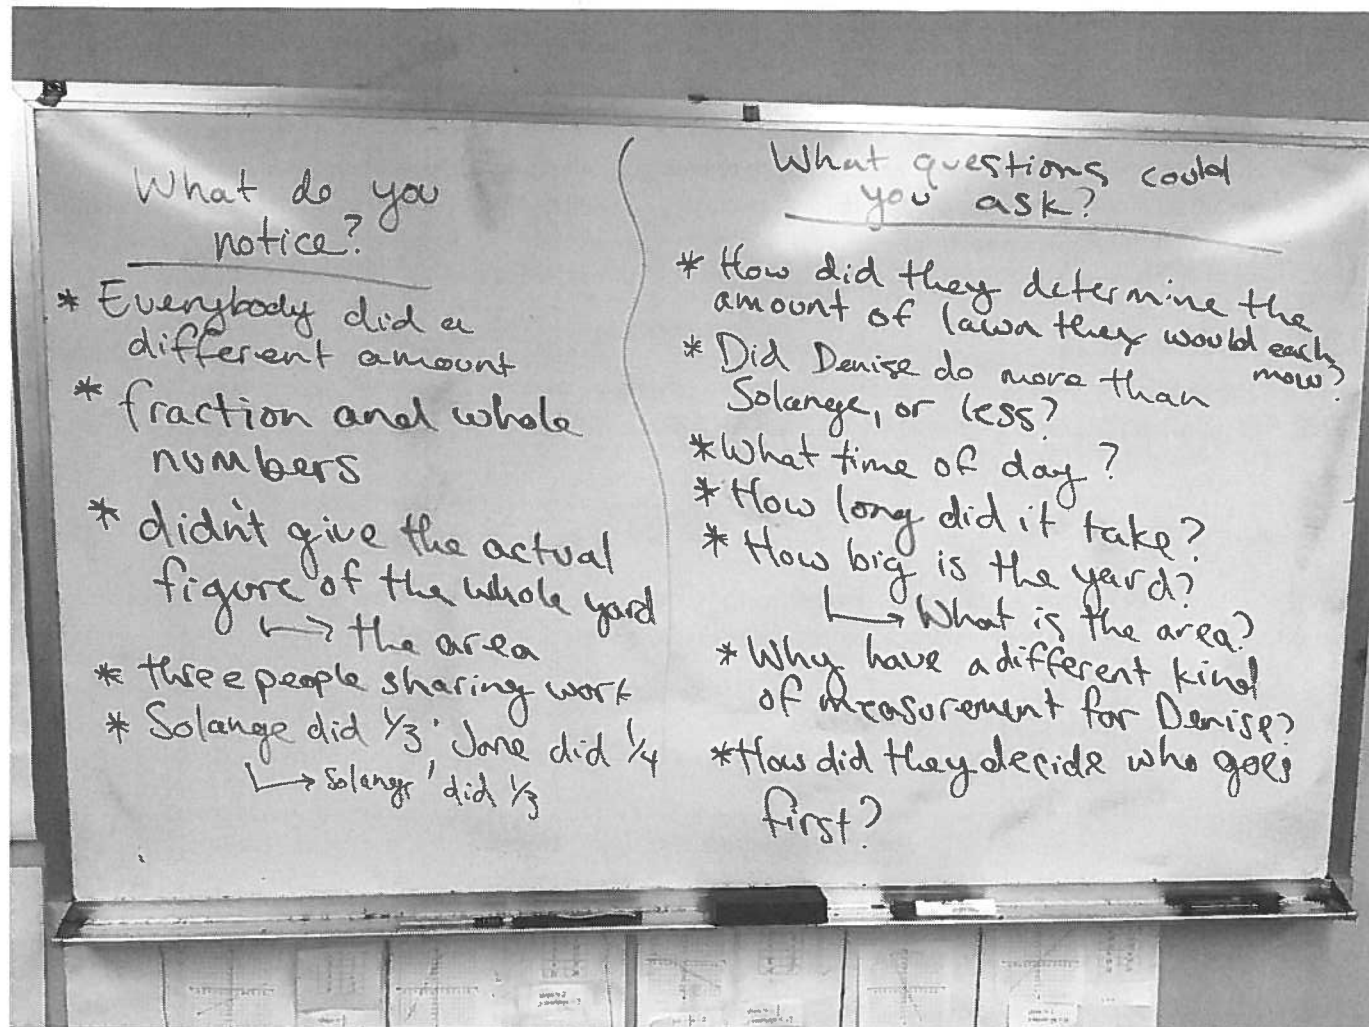 What do you
notice?
* Everybody did a
different amount
* fraction and whole
numbers
* didn't give the actual
figure of the whole yard
↳ the area
* three people sharing work
* Solange did 1/3, Jane did 1/4
↳ Solange did 1/3
What questions could
you ask?
* How did they determine the
amount of lawn they would each
mow?
* Did Denise do more than
Solange, or less?
* What time of day?
* How long did it take?
* How big is the yard?
↳ What is the area?
* Why have a different kind
of measurement for Denise?
* How did they decide who goes
first?